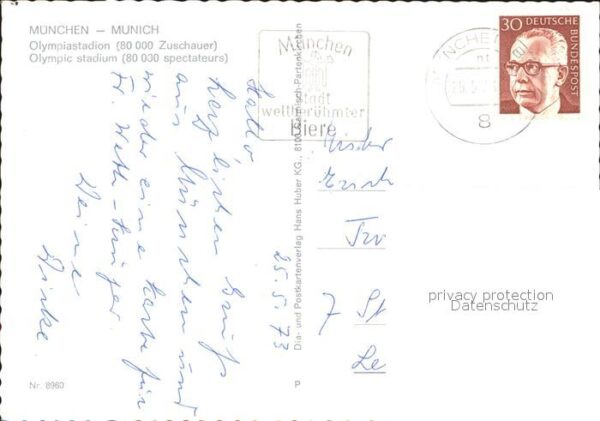 MÜNCHEN – MUNICH
Olympiastadion (80 000 Zuschauer)
Olympic stadium (80 000 spectateurs)
München
Stadt
weltberühmter
Biere
MÜNCHEN
8
30 DEUTSCHE
BUNDESPOST
Hallo
herzlichen Gruß
aus München und
wieder eine Karte für
Deine
25.5.73
Dia- und Postkartenverlag Hans Huber KG., 8100 Garmisch-Partenkirchen
7 St
privacy protection
Datenschutz
Nr. 8960
P